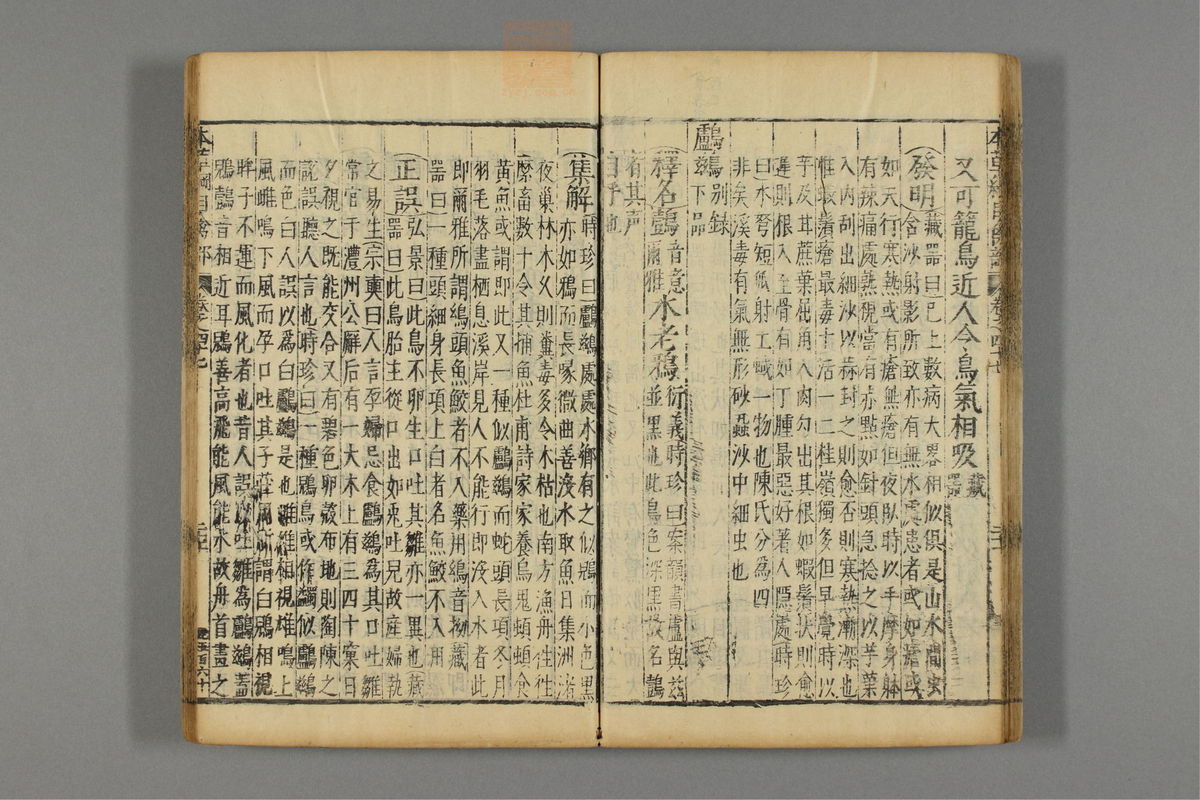 又可籠鳥近人令鳥氣相吸藏器
發明藏器曰已上數病大畧相似俱是山水間虫
含沙射影所致亦有無水處患者或如瘧或
如天行寒熱或有瘡無瘡但夜臥時以手摩身體
有辣痛處熟視當有赤點如針頭急捻之以芋葉
入內刮出細沙以蒜封之則愈否則寒熱漸深也
惟蝦鬚瘡最毒十活一二桂嶺獨多但早覺時以
芋及甘蔗葉屈角入肉勾出其根如蝦鬚狀則愈
遲則根入至骨有如丁腫最惡好著人隱處時珍
曰水弩短狐射工蜮一物也陳氏分為四
非矣溪毒有氣無形砂蝨沙中細虫也
鸕鷀別録
下品
釋名鷧音意爾雅水老鴉衍義時珍曰案韻書盧與茲
並黑也此鳥色深黑故名鷧
者其声
自呼也
集解時珍曰鸕鷀處處水鄉有之似鶂而小色黑
亦如鴉而長喙微曲善沒水取魚日集洲渚
夜巢林木久則糞毒多令木枯也南方漁舟往往
縻畜數十令其捕魚杜甫詩家家養烏鬼頓頓食
黃魚或謂即此又一種似鸕鷀而蛇頭長項冬月
羽毛落盡栖息溪岸見人不能行即沒入水者此
即爾雅所謂鳭頭魚鮫者不入藥用鳭音拗藏
器曰一種頭細身長項上白者名魚鮫不入用
正誤弘景曰此鳥不卵生口吐其雛亦一異也藏
器曰此鳥胎生從口出如兎吐兒故産婦執
之易生宗奭曰人言孕婦忌食鸕鷀為其口吐雛
常官于澧州公廨后有一大木上有三四十巢日
夕視之既能交合又有碧色卵殻布地則陶陳之
說誤聽人言也時珍曰一種鶂鳥或作鷊似鸕鷀
而色白人誤以為白鸕鷀是也雌雄相視雄鳴上
風雌鳴下風而孕口吐其子莊周所謂白鶂相視
眸子不運而風化者也昔人誤以吐雛為鸕鷀蓋
鶂鷧音相近耳鶂善高飛能風能水故舟首畫之